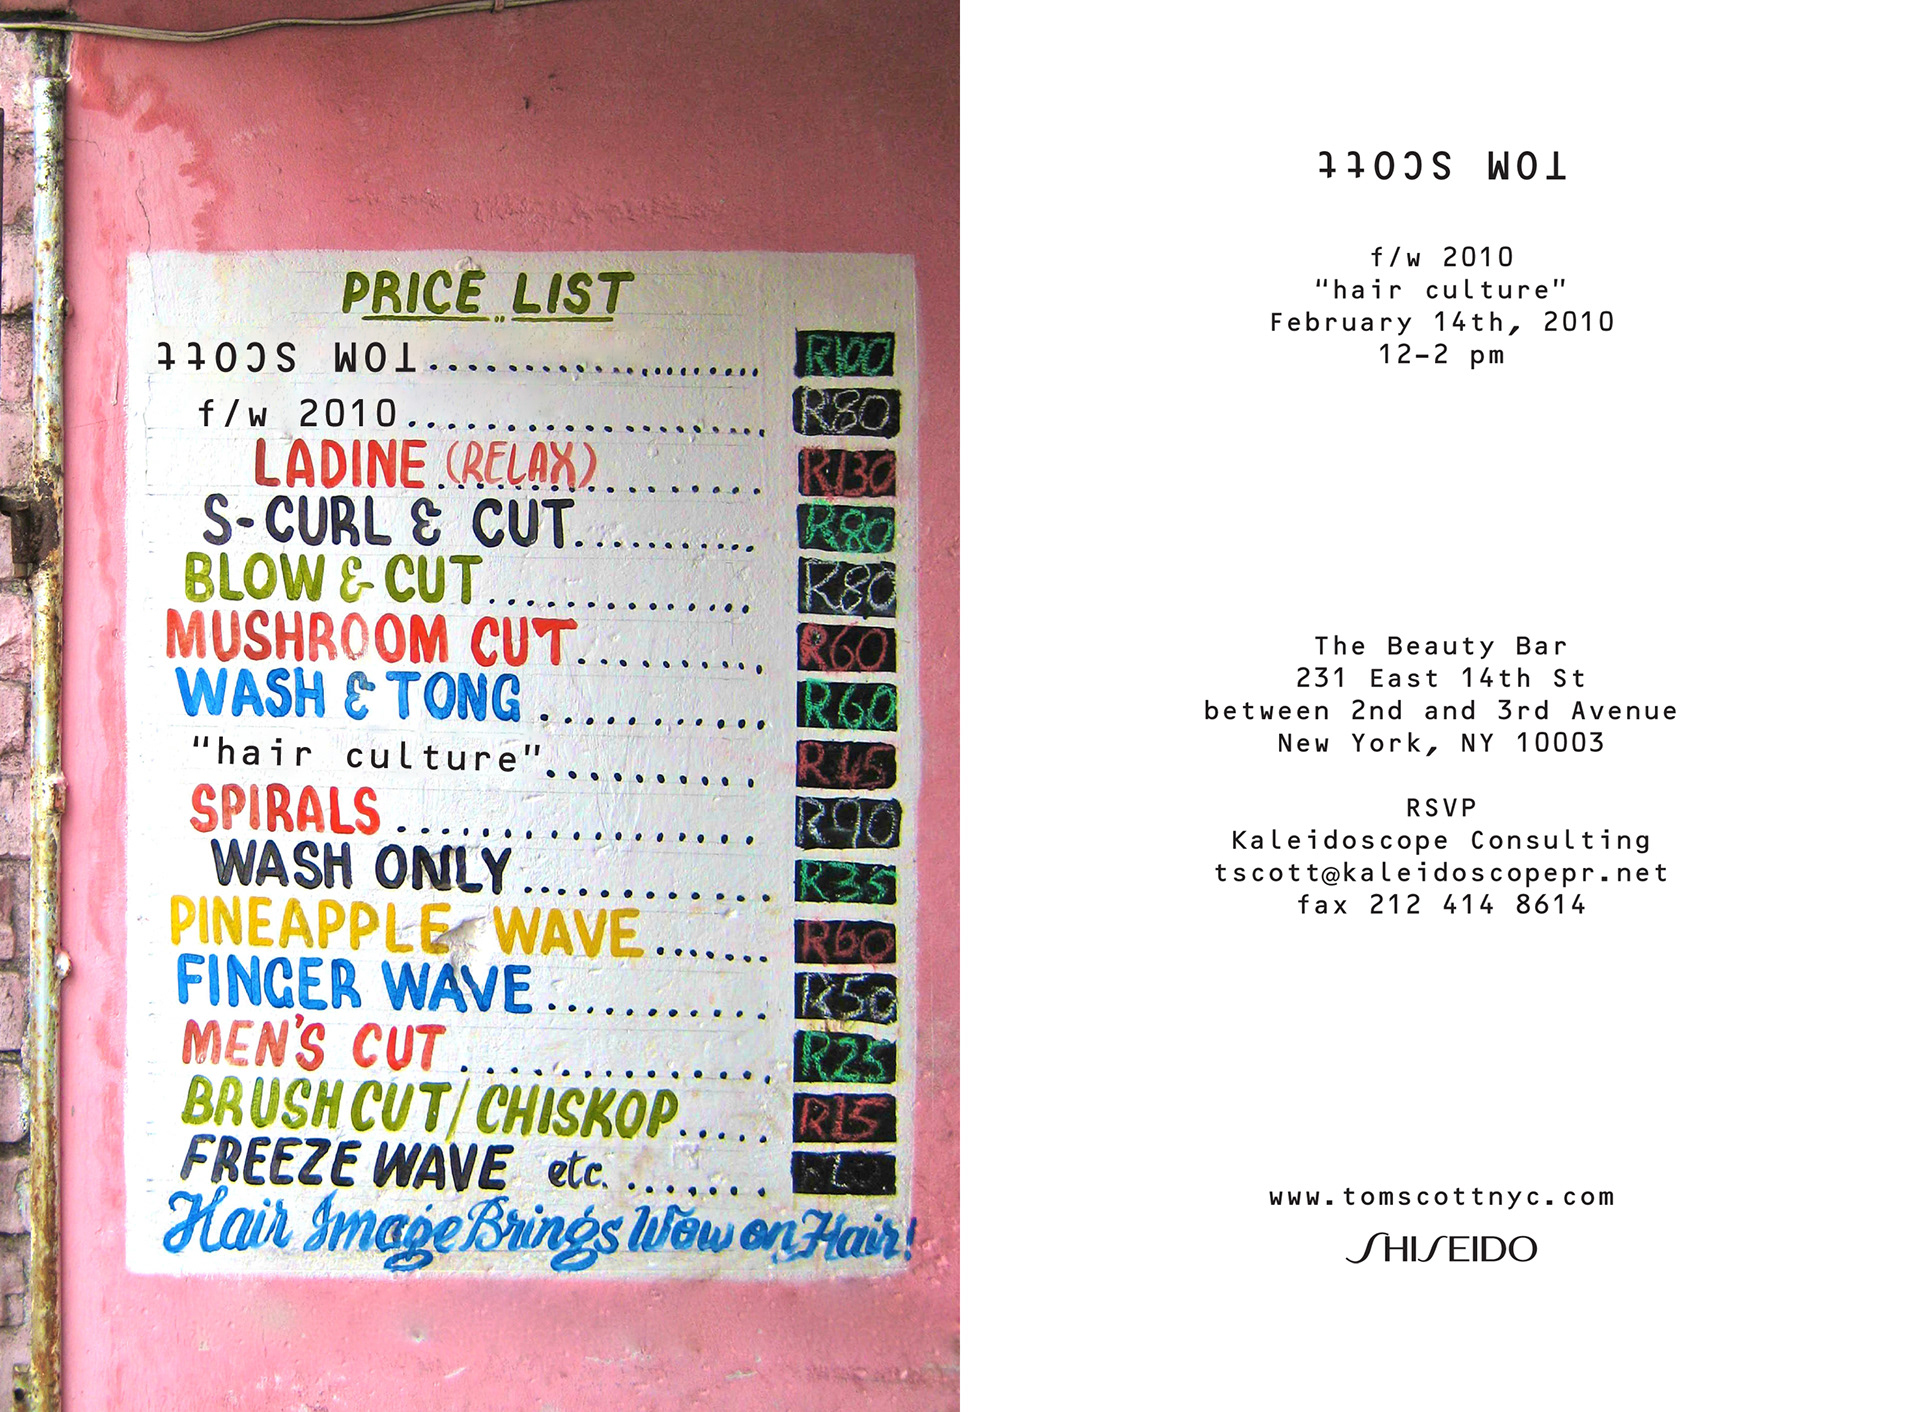 PRICE LIST
TOM SCOtt.................... R100
f/w 2010.................. R80
LADINE (RELAX)................ R130
S-CURL & CUT.......... R80
BLOW & CUT............. R80
MUSHROOM CUT......... R60
WASH & TONG........... R60
"hair culture"......... R45
SPIRALS................. R90
WASH ONLY............. R35
PINEAPPLE WAVE...... R60
FINGER WAVE........... R50
MEN'S CUT............... R25
BRUSH CUT/CHISKOP..... R15
FREEZE WAVE etc. .......
Hair Image Brings Wow on Hair!
TOM SCOtt
f/w 2010
"hair culture"
February 14th, 2010
12-2 pm
The Beauty Bar
231 East 14th St
between 2nd and 3rd Avenue
New York, NY 10003
RSVP
Kaleidoscope Consulting
tscott@kaleidoscopepr.net
fax 212 414 8614
www.tomscottnyc.com
SHISEIDO